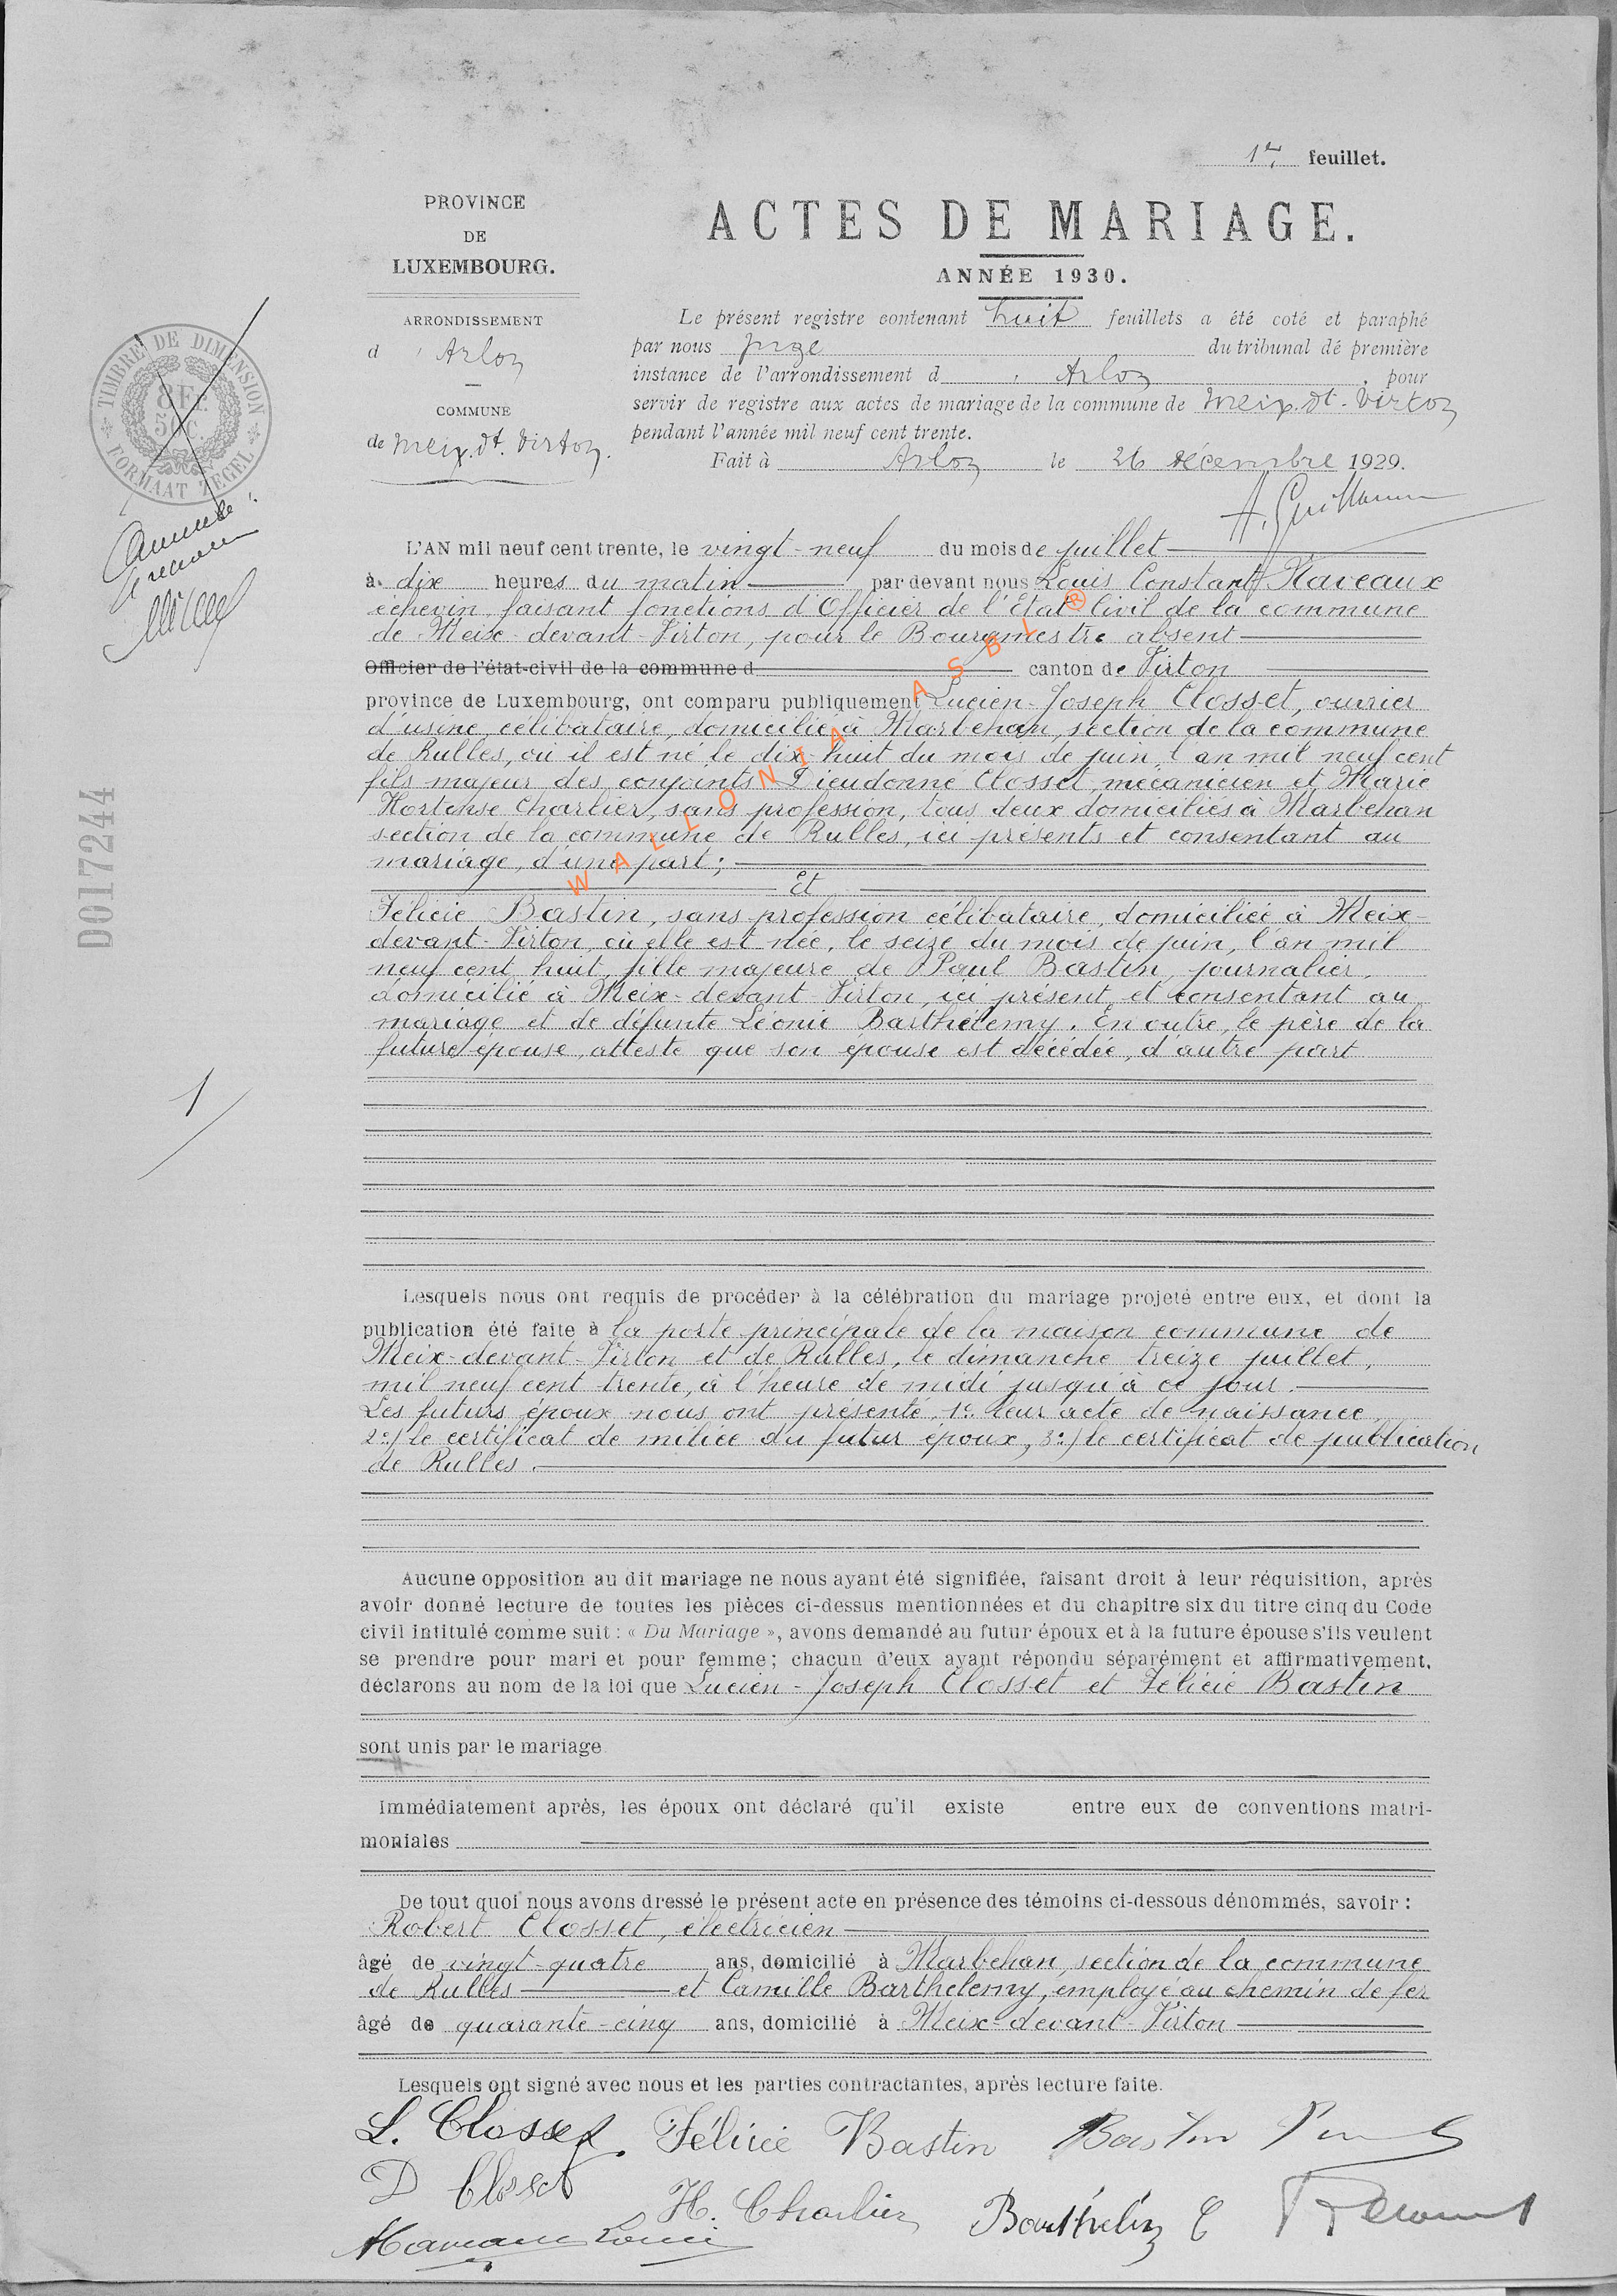 1er feuillet.
PROVINCE
DE
LUXEMBOURG.
ARRONDISSEMENT
d'Arlon
COMMUNE
de Meix-dt-Virton.
ACTES DE MARIAGE.
ANNÉE 1930.
Le présent registre contenant huit feuillets a été coté et paraphé
par nous Juge du tribunal de première
instance de l'arrondissement d'Arlon, pour
servir de registre aux actes de mariage de la commune de Meix-dt-Virton
pendant l'année mil neuf cent trente.
Fait à Arlon le 26 décembre 1929.
TIMBRE DE DIMENSION
8 Fr.
50 C.
FORMAAT ZEGEL
D017244
1
L'AN mil neuf cent trente, le vingt-neuf du mois de juillet
à dix heures du matin par devant nous Louis Constant
échevin faisant fonctions d'Officier de l'Etat Civil de la commune
de Meix-devant-Virton, pour le Bourgmestre absent
Officier de l'état-civil de la commune d canton de Virton
province de Luxembourg, ont comparu publiquement Lucien-Joseph Closset, ouvrier
d'usine, célibataire, domicilié à Marbehan, section de la commune
de Rulles, où il est né le dix-huit du mois de juin, l'an mil neuf cent
fils majeur des conjoints Dieudonné Closset, mécanicien et Marie
Hortense Charlier, sans profession, tous deux domiciliés à Marbehan
section de la commune de Rulles, ici présents et consentant au
mariage, d'une part;
Et
Félicie Bastin, sans profession célibataire, domiciliée à Meix-
devant-Virton, où elle est née, le seize du mois de juin, l'an mil
neuf cent huit, fille majeure de Paul Bastin, journalier,
domicilié à Meix-devant-Virton, ici présent et consentant au
mariage et de défunte Léonie Barthélemy. En outre, le père de la
future épouse, atteste que son épouse est décédée, d'autre part
WALLONIA ASBL ®
Lesquels nous ont requis de procéder à la célébration du mariage projeté entre eux, et dont la
publication été faite à la porte principale de la maison commune de
Meix-devant-Virton et de Rulles, le dimanche treize juillet,
mil neuf cent trente, à l'heure de midi jusqu'à ce jour.
Les futurs époux nous ont présenté, 1º leur acte de naissance,
2º/ le certificat de milice du futur époux, 3º/ le certificat de publication
de Rulles.
Aucune opposition au dit mariage ne nous ayant été signifiée, faisant droit à leur réquisition, après
avoir donné lecture de toutes les pièces ci-dessus mentionnées et du chapitre six du titre cinq du Code
civil intitulé comme suit : « Du Mariage », avons demandé au futur époux et à la future épouse s'ils veulent
se prendre pour mari et pour femme; chacun d'eux ayant répondu séparément et affirmativement,
déclarons au nom de la loi que Lucien-Joseph Closset et Félicie Bastin
sont unis par le mariage
Immédiatement après, les époux ont déclaré qu'il existe entre eux de conventions matri-
moniales
De tout quoi nous avons dressé le présent acte en présence des témoins ci-dessous dénommés, savoir :
Robert Closset, électricien
âgé de vingt-quatre ans, domicilié à Marbehan, section de la commune
de Rulles et Camille Barthélemy, employé au chemin de fer
âgé de quarante-cinq ans, domicilié à Meix-devant-Virton
Lesquels ont signé avec nous et les parties contractantes, après lecture faite.
L. Closset Félicie Bastin Bastin
D Closset H. Charlier